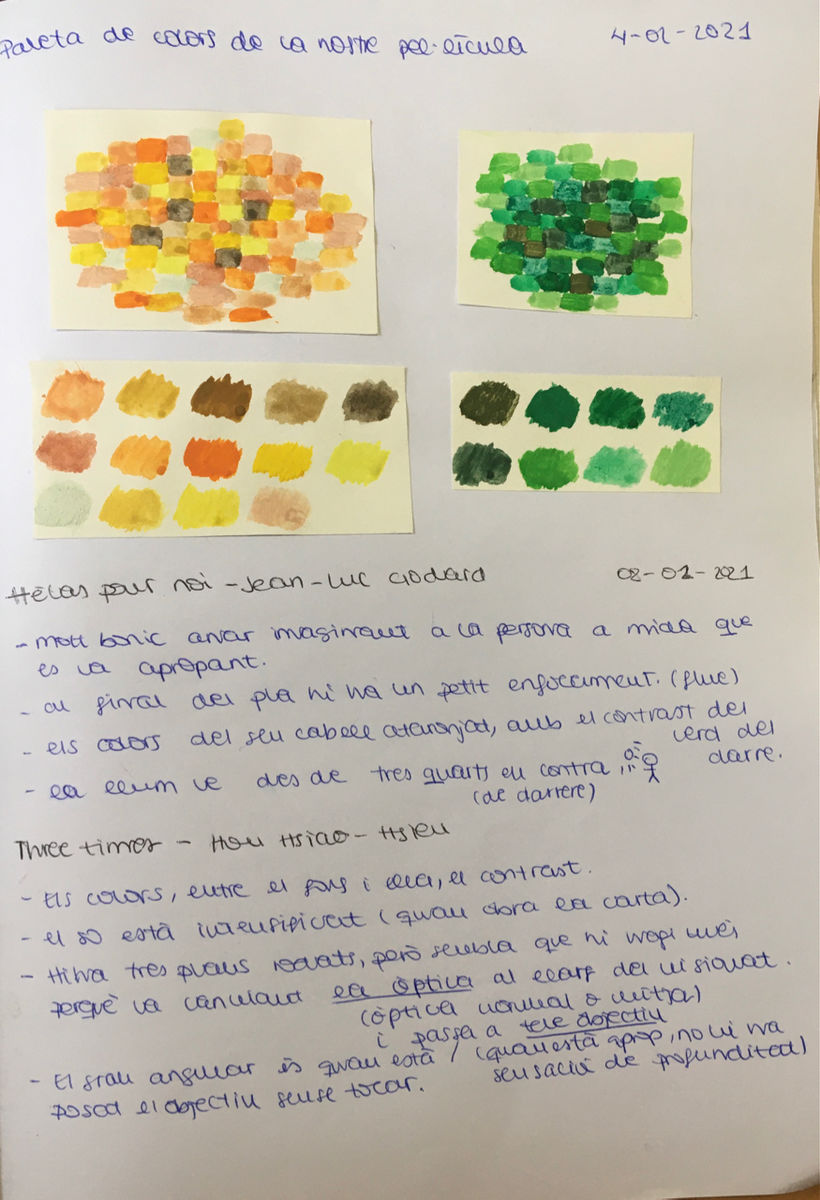 Paleta de colors de la nostre pel·lícula 4-02-2021
Hélas pour moi - Jean-Luc Godard 08-02-2021
- molt bonic anar imaginant a la persona a mida que
es va apropant.
- al final del pla hi ha un petit enfocament. (flue)
- els colors del seu cabell ataronjat, amb el contrast del
verd del
darre.
- la llum ve des de tres quarts en contra
(de darrere)
Three times - Hou Hsiao-Hsien
- Els colors, entre el fons i ella, el contrast.
- el so està intensificat (quan obra la carta).
- Hi ha tres plans rodats, però sembla que hi hagi més
perquè va canviant la òptica al llarg del visionat.
(òptica normal o mitja)
i passa a tele objectiu
- El gran angular és quan està / (quan està aprop, no hi ha
posat el objectiu sense tocar. sensació de profunditad)